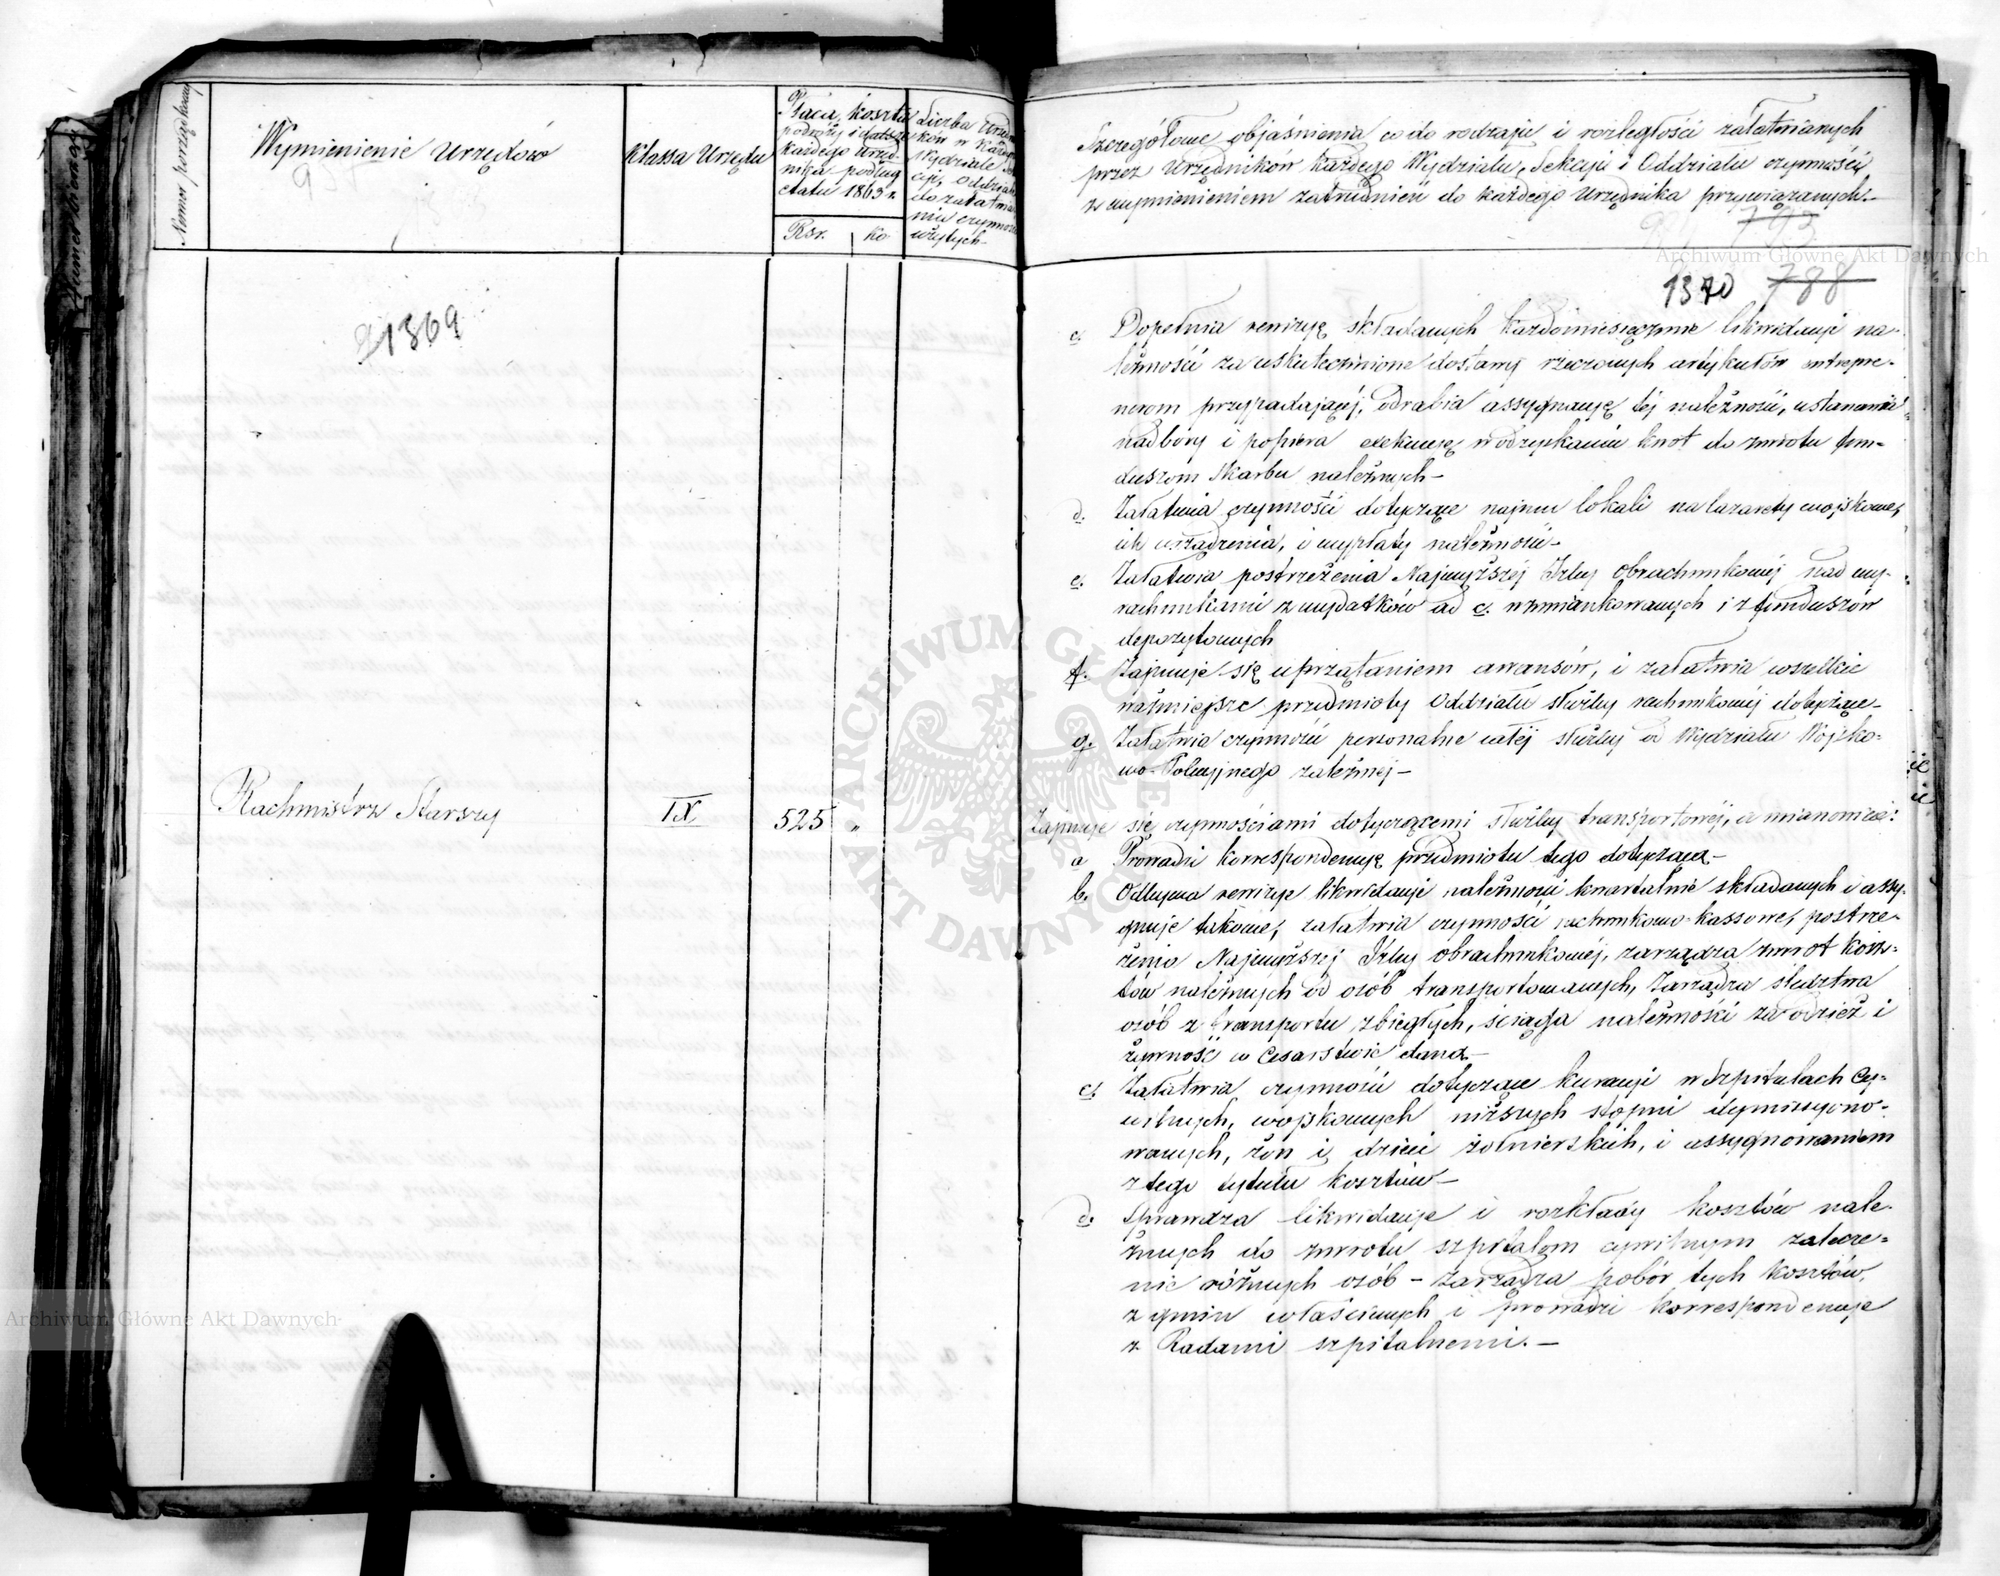 Numer porządkowy
Wymienienie Urzędów
Klassa Urzędu
Płaca, koszta
podróży i datsze
każdego Urzęd-
nika podług
etatu 1863 r.
Rsr. ko.
Liczba Urzędni
ków w każdym
Wydziale Sek
cji, Oddziale
do załatwia
nia czynności
użytych
1369
Rachmistrz Starszy
IX
525 "
Szczegółowe objaśnienia co do rodzaju i rozległości załatwianych
przez Urzędników każdego Wydziału, Sekcji i Oddziału czynności
z wymienieniem zatrudnień do każdego Urzędnika przywiązanych.
793
1370 788
c. Dopełnia rewizyę składanych każdomiesięcznie likwidacji na-
leżności za uskutecznione dostawy rzeczonych artykułów entrepre-
nerom przypadającej, odrabia assygnacyę téj należności, ustanawia
nadbiory i popiera exekucyę w odzyskaniu kwot do zwrotu fun-
duszom Skarbu należnych -
d. Załatwia czynności dotyczące najmu lokali na lazarety wojskowe,
ich urządzenia, i wypłaty należności -
e. Załatwia postrzeżenia Najwyższej Izby Obrachunkowéj nad wy-
rachunkami z wydatków ad c. wzmiankowanych i z funduszów
depozytowych
f. Zajmuje się uprzątaniem awansów, i załatwia wszelkie
ważniejsze przedmioty Oddziału służby rachunkowéj dotyczące -
g. Załatwia czynności personalne całéj służby od Wydziału Wojsko-
wo-Policyjnego zależnej -
Zajmuje się czynnościami dotyczącemi służby transportowéj, a mianowicie:
a Prowadzi korrespondencyę przedmiotu tego dotyczącą -
b. Odbywa rewizye likwidacji należności kwartalnie składanych i assy-
gnuje takowe, załatwia czynności rachunkowo-kassowe, postrze-
żenia Najwyższej Izby obrachunkowéj, zarządza zwrot kosz-
tów należnych od osób transportowanych, Zarządza śledztwa
osób z transportu zbiegłych, ściąga należności za odzież i
żywność w Cesarstwie daną -
c. Załatwia czynności dotyczące kuracji w Szpitalach Cy-
wilnych, wojskowych niższych stopni dymissyono-
wanych, żon i dzieci żołnierskich, i assygnowaniem
z tego tytułu kosztów -
d. Sprawdza likwidacye i rozkłady kosztów nale-
żnych do zwrotu szpitalom cywilnym za lecze-
nie różnych osób - Zarządza pobór tych kosztów,
z gmin właściwych i prowadzi korrespondencye
z Radami szpitalnemi. -
Archiwum Główne Akt Dawnych
Archiwum Główne Akt Dawnych
ARCHIWUM GŁÓWNE AKT DAWNYCH